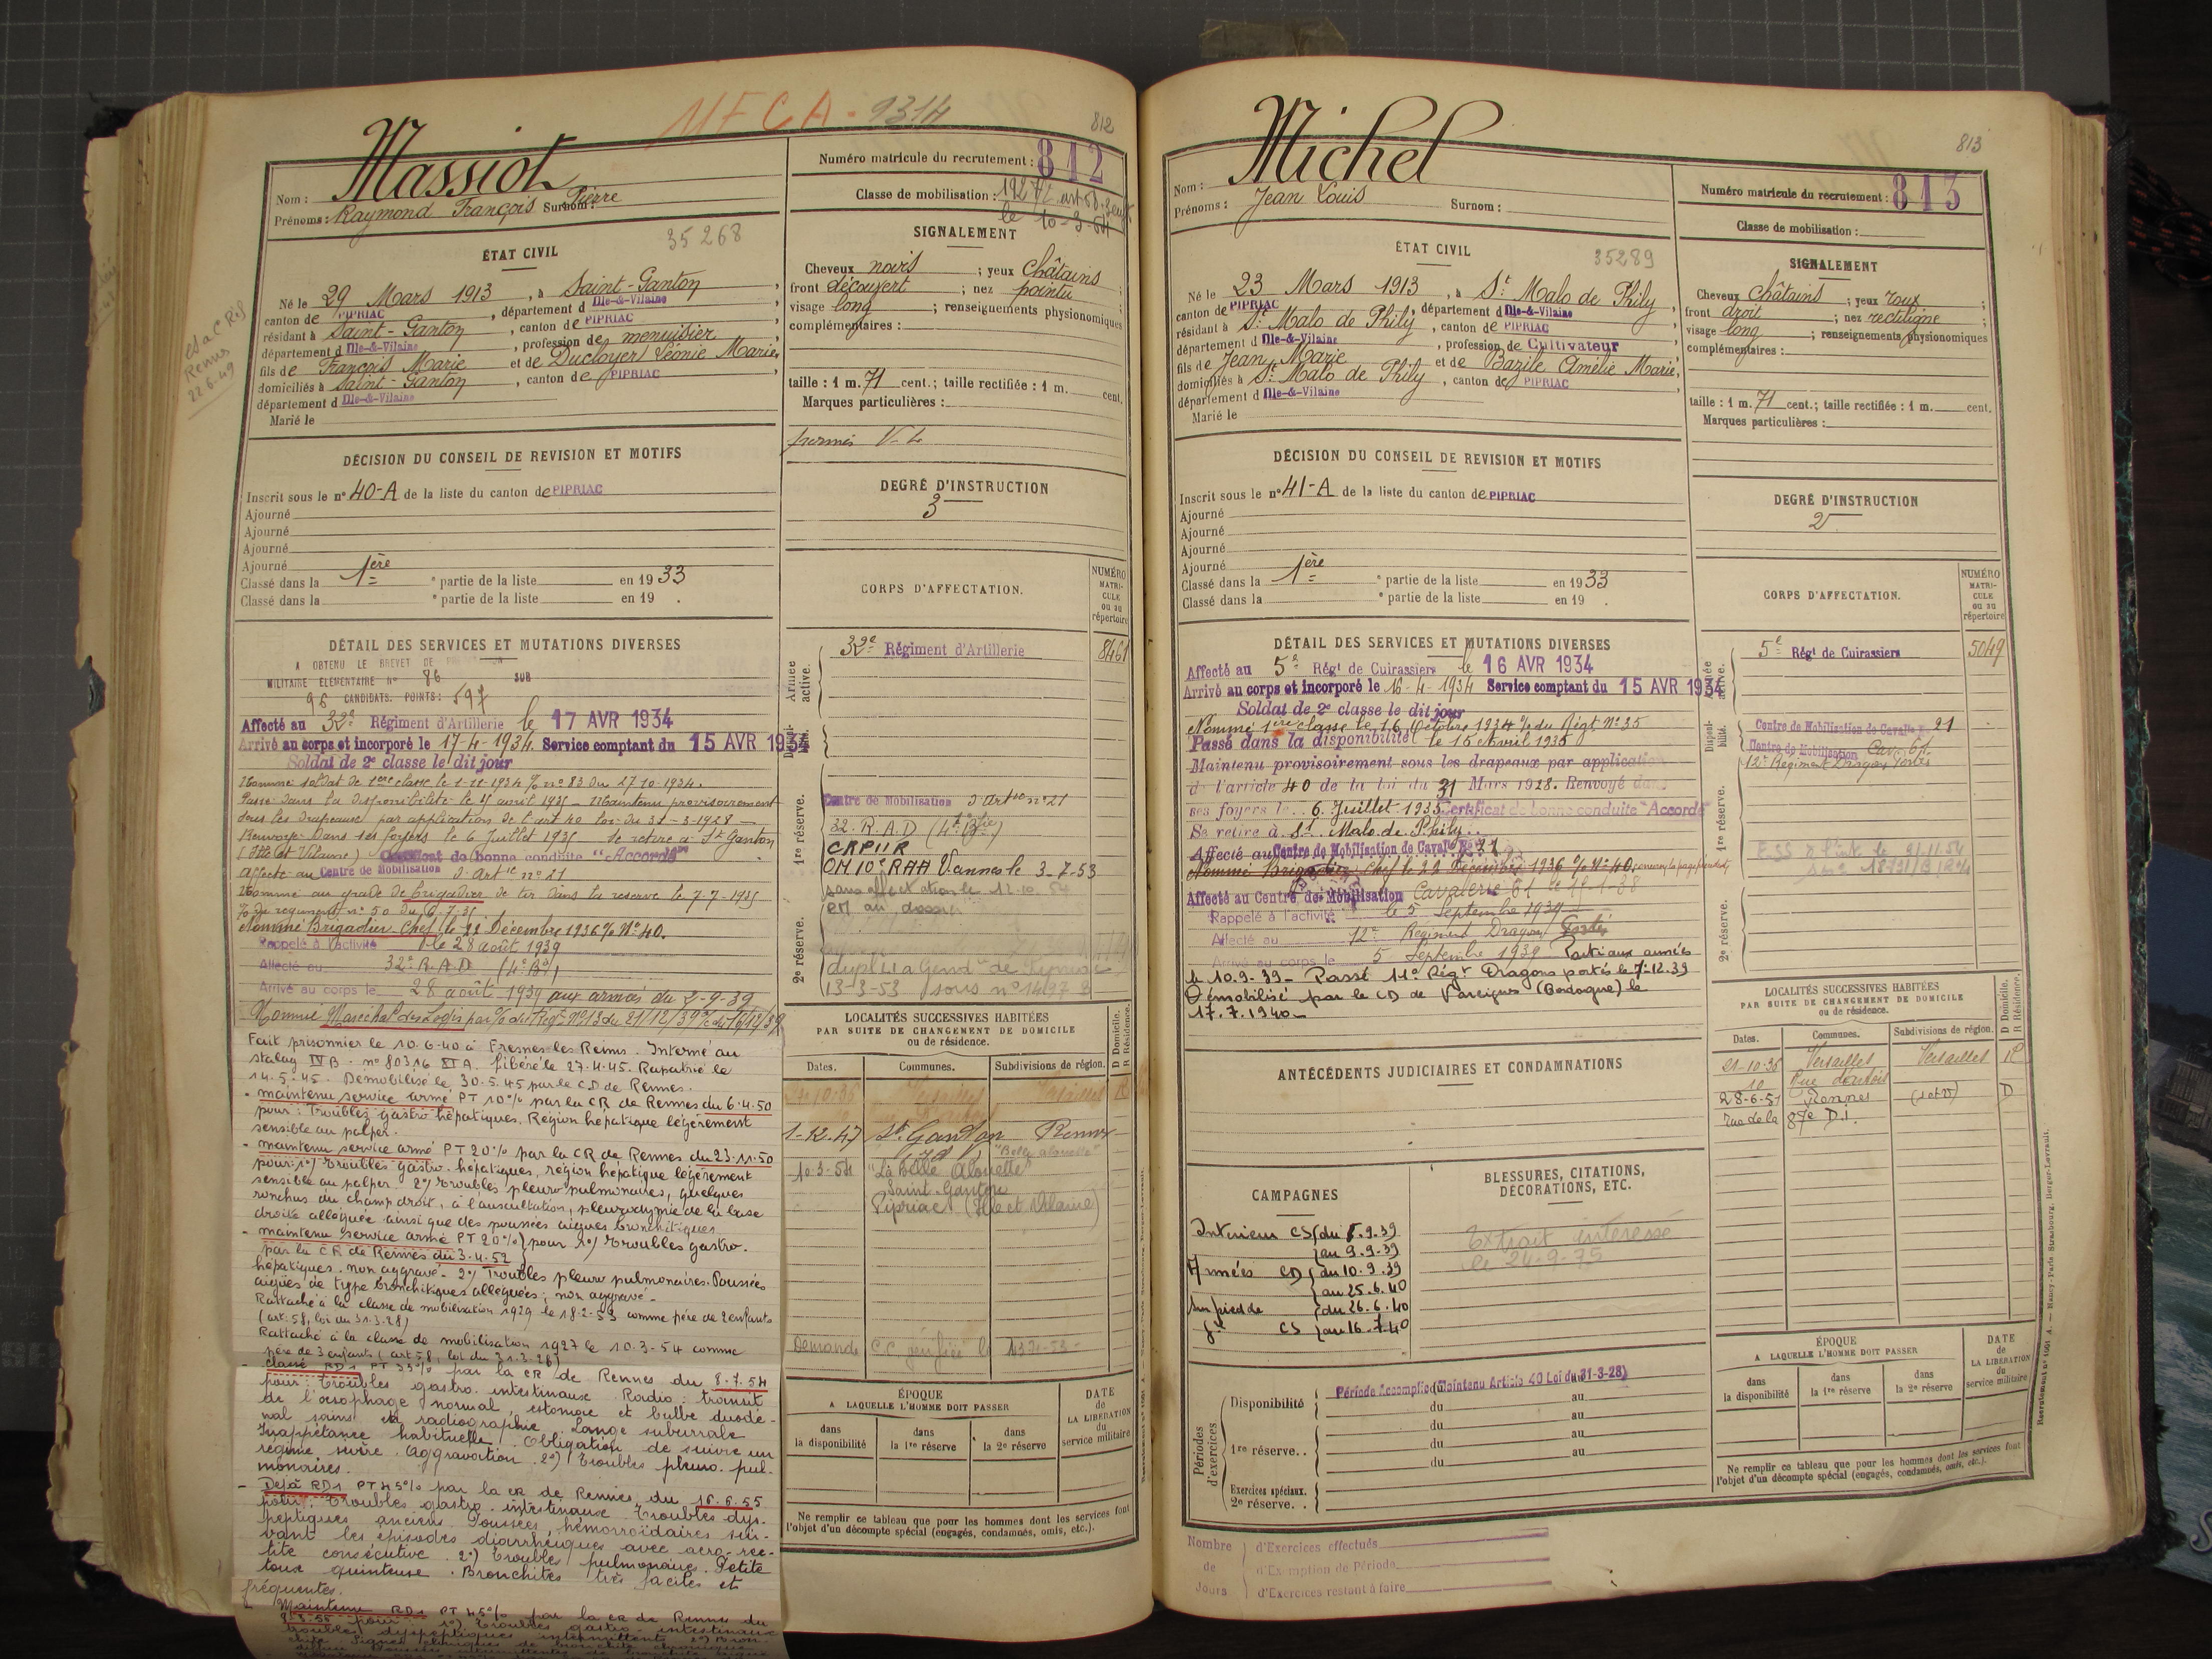 MFCA - 9314
812
Massiot
Nom :
Prénoms : Raymond François Pierre Surnom :
35268
ÉTAT CIVIL
Né le 29 Mars 1913, à Saint-Ganton,
canton de PIPRIAC, département d Ille-&-Vilaine
résidant à Saint-Ganton, canton de PIPRIAC,
département d Ille-&-Vilaine, profession de menuisier,
fils de François Marie et de Ducloyer Léonie Marie,
domiciliés à Saint-Ganton, canton de PIPRIAC,
département d Ille-&-Vilaine
Marié le
Rennes
22.6.49
DÉCISION DU CONSEIL DE REVISION ET MOTIFS
Inscrit sous le n° 40-A de la liste du canton de PIPRIAC
Ajourné
Ajourné
Ajourné
Ajourné
Classé dans la 1ère partie de la liste en 1933
Classé dans la e partie de la liste en 19 .
DÉTAIL DES SERVICES ET MUTATIONS DIVERSES
A OBTENU LE BREVET DE
MILITAIRE ÉLÉMENTAIRE N° 86 SUR
96 CANDIDATS. POINTS : 597
Affecté au 32e Régiment d'Artillerie le 17 AVR 1934
Arrivé au corps et incorporé le 17-4-1934. Service comptant du 15 AVR 1934
Soldat de 2e classe le dit jour
Nommé soldat de 1ère classe le 1-11-1934 % n° 83 du 27-10-1934.
Passé dans la disponibilité le 15 avril 1935 - Maintenu provisoirement
sous les drapeaux par application de l'art 40 loi du 31-3-1928 -
Renvoyé dans ses foyers le 6 Juillet 1935 se retire à St Ganton
(Ille et Vilaine) Certificat de bonne conduite "Accordé"
Affecté au Centre de Mobilisation d'Artie n° 21
Nommé au grade de brigadier de tir dans la réserve le 7-7-1935
% du régiment n° 50 du 6-7-35
Nommé Brigadier-Chef le 22 Décembre 1936 % N° 40.
Rappelé à l'activité le 28 août 1939
Affecté au 32e R.A.D (4e Bie)
Arrivé au corps le 28 août 1939 aux armées du 2-9-39
Nommé Maréchal des Logis par % du Régt N° 13 du 21/12/39
Fait prisonnier le 10-6-40 à Fresnes les Reims. Interné au
stalag IV B - n° 80316 XI A. Libéré le 27-4-45. Rapatrié le
14-5-45. Démobilisé le 30-5-45 par le CD de Rennes.
- maintenu service armé PT 10% par la CR de Rennes du 6-4-50
pour : Troubles gastro hépatiques. Région hépatique légèrement
sensible au palper.
- maintenu service armé PT 20% par la CR de Rennes du 23-11-50
pour : 1°) troubles gastro-hépatiques, région hépatique légèrement
sensible au palper 2°) troubles pleuro pulmonaires, quelques
ronchus du champ droit, à l'auscultation, pleurodynie de la base
droite alléguée ainsi que des poussées aigues bronchitiques
- maintenu service armé PT 20%) pour 1°) troubles gastro-
par la CR de Rennes du 3-4-52
hépatiques. non aggravé - 2°) Troubles pleuro pulmonaires. Poussées
aigües de type bronchitiques alléguées ; non aggravé -
Rattaché à la classe de mobilisation 1929 le 18-2-53 comme père de 2 enfants
(art. 58, loi du 31-3-28)
Rattaché à la classe de mobilisation 1927 le 10-3-54 comme
père de 3 enfants (art. 58, loi du 31-3-28)
- classé RD1 PT 35% par la CR de Rennes du 8.7.54
pour : troubles gastro intestinaux. Radio : transit
de l'oesophage normal, estomac et bulbe duodé-
nal sains à radiographie. Langue saburrale
Inappétance habituelle. Obligation de suivre un
régime sévère. Aggravation. 2°) troubles pleuro. pul-
monaires.
- Déjà RD1 PT 45% par la CR de Rennes du 16.6.55
pour : troubles gastro-intestinaux. Troubles dys-
peptiques anciens. Poussées hémorroïdaires sui-
vant les épisodes diarrhéiques avec
tite consécutive. 2°) troubles pulmonaires. Petite
toux quinteuse. Bronchites très faciles et
fréquentes.
- Maintenu RD1 PT 45% par la CR de Rennes du
pour 1°) troubles gastro-intestinaux
troubles dyspeptiques intermittents 2°) Bron-
Numéro matricule du recrutement : 812
Classe de mobilisation : 1927
le 10-3-54
SIGNALEMENT
Cheveux noirs ; yeux châtains
front découvert ; nez pointu ;
visage long ; renseignements physionomiques
complémentaires :
taille : 1 m. 71 cent. ; taille rectifiée : 1 m. cent.
Marques particulières :
permis V.L
DEGRÉ D'INSTRUCTION
3
CORPS D'AFFECTATION.
NUMÉRO MATRICULE ou au répertoire
Armée active.
32e Régiment d'Artillerie 8461
Disponibilité.
1re réserve.
Centre de Mobilisation d'Artie n° 21
32. R.A.D (4e Bie)
OM 10e RAA Vannes le 3-7-53
sans affectation le 12.10.54
2e réserve.
13-3-53 sous n° 1497
LOCALITÉS SUCCESSIVES HABITÉES
PAR SUITE DE CHANGEMENT DE DOMICILE
ou de résidence.
D Domicile. R Résidence.
Dates. Communes. Subdivisions de région.
Versailles Versailles R
1-12-47 St Ganton Rennes
10-3-54 "La belle Alouette"
Saint-Ganton
Pipriac (Ille et Vilaine)
ÉPOQUE
A LAQUELLE L'HOMME DOIT PASSER
DATE de LA LIBÉRATION du service militaire
dans la disponibilité
dans la 1re réserve
dans la 2e réserve
Ne remplir ce tableau que pour les hommes dont les services font
l'objet d'un décompte spécial (engagés, condamnés, omis, etc.).
813
Michel
Nom :
Prénoms : Jean Louis Surnom :
35289
ÉTAT CIVIL
Né le 23 Mars 1913, à St Malo de Phily,
canton de PIPRIAC, département d Ille-&-Vilaine
résidant à St Malo de Phily, canton de PIPRIAC
département d Ille-&-Vilaine, profession de Cultivateur
fils de Jean Marie et de Bazile Amélie Marie,
domiciliés à St Malo de Phily, canton de PIPRIAC
département d Ille-&-Vilaine
Marié le
DÉCISION DU CONSEIL DE REVISION ET MOTIFS
Inscrit sous le n° 41-A de la liste du canton de PIPRIAC
Ajourné
Ajourné
Ajourné
Ajourné
Classé dans la 1ère partie de la liste en 1933
Classé dans la e partie de la liste en 19 .
DÉTAIL DES SERVICES ET MUTATIONS DIVERSES
Affecté au 5e Régt de Cuirassiers le 16 AVR 1934
Arrivé au corps et incorporé le 16-4-1934 Service comptant du 15 AVR 1934
Soldat de 2e classe le dit jour
Nommé 1ère classe le 16 Octobre 1934 % du Régt N° 35
Passé dans la disponibilité le 15 Avril 1935
Maintenu provisoirement sous les drapeaux par application
de l'article 40 de la loi du 31 Mars 1928. Renvoyé dans
ses foyers le 6 Juillet 1935 Certificat de bonne conduite "Accordé"
Se retire à St Malo de Phily.
Affecté au Centre de Mobilisation de Cavalie N° 21
Nommé Brigadier Chef le 22 Décembre 1936 % N° 40.
Affecté au Centre de Mobilisation Cavalerie 61
Rappelé à l'activité le 5 Septembre 1939
Affecté au 12e Régiment Dragons Portés
Arrivé au corps le 5 Septembre 1939 Parti aux armées
le 10-9-39 - Passé 11e Régt Dragons portés le 7-12-39
Démobilisé par le CD de Vareignes (Dordogne) le
17.7.1940 -
ANTÉCÉDENTS JUDICIAIRES ET CONDAMNATIONS
CAMPAGNES
Intérieur CS (du 5.9.39
au 9.9.39
Armées CD (du 10.9.39
au 25.6.40
Sur pied de (du 26.6.40
gre CS (au 16-7-40
BLESSURES, CITATIONS, DÉCORATIONS, ETC.
Extrait intéressé
le 24-9-75
Périodes d'exercices
Disponibilité Période Accomplie (Maintenu Article 40 Loi du 31-3-28)
du au
du au
1re réserve. . du au
du au
Exercices spéciaux.
2e réserve. .
Nombre de Jours
d'Exercices effectués
d'Exemption de Période
d'Exercices restant à faire
Numéro matricule du recrutement : 813
Classe de mobilisation :
SIGNALEMENT
Cheveux châtains ; yeux roux ;
front droit ; nez rectiligne ;
visage long ; renseignements physionomiques
complémentaires :
taille : 1 m. 71 cent. ; taille rectifiée : 1 m. cent.
Marques particulières :
DEGRÉ D'INSTRUCTION
2
CORPS D'AFFECTATION.
NUMÉRO MATRICULE ou au répertoire
Armée active.
5e Régt de Cuirassiers 5049
Disponibilité.
Centre de Mobilisation de Cavalie N° 21
Centre de Mobilisation Cav. 61
12e Régiment Dragons Portés
1re réserve.
2e réserve.
LOCALITÉS SUCCESSIVES HABITÉES
PAR SUITE DE CHANGEMENT DE DOMICILE
ou de résidence.
D Domicile. R Résidence.
Dates. Communes. Subdivisions de région.
21-10-35 Versailles Versailles R
10 Rue
28-6-51 Rennes D
Rue de la 87e D.I.
ÉPOQUE
A LAQUELLE L'HOMME DOIT PASSER
DATE de LA LIBÉRATION du service militaire
dans la disponibilité
dans la 1re réserve
dans la 2e réserve
Ne remplir ce tableau que pour les hommes dont les services font
l'objet d'un décompte spécial (engagés, condamnés, omis, etc.).